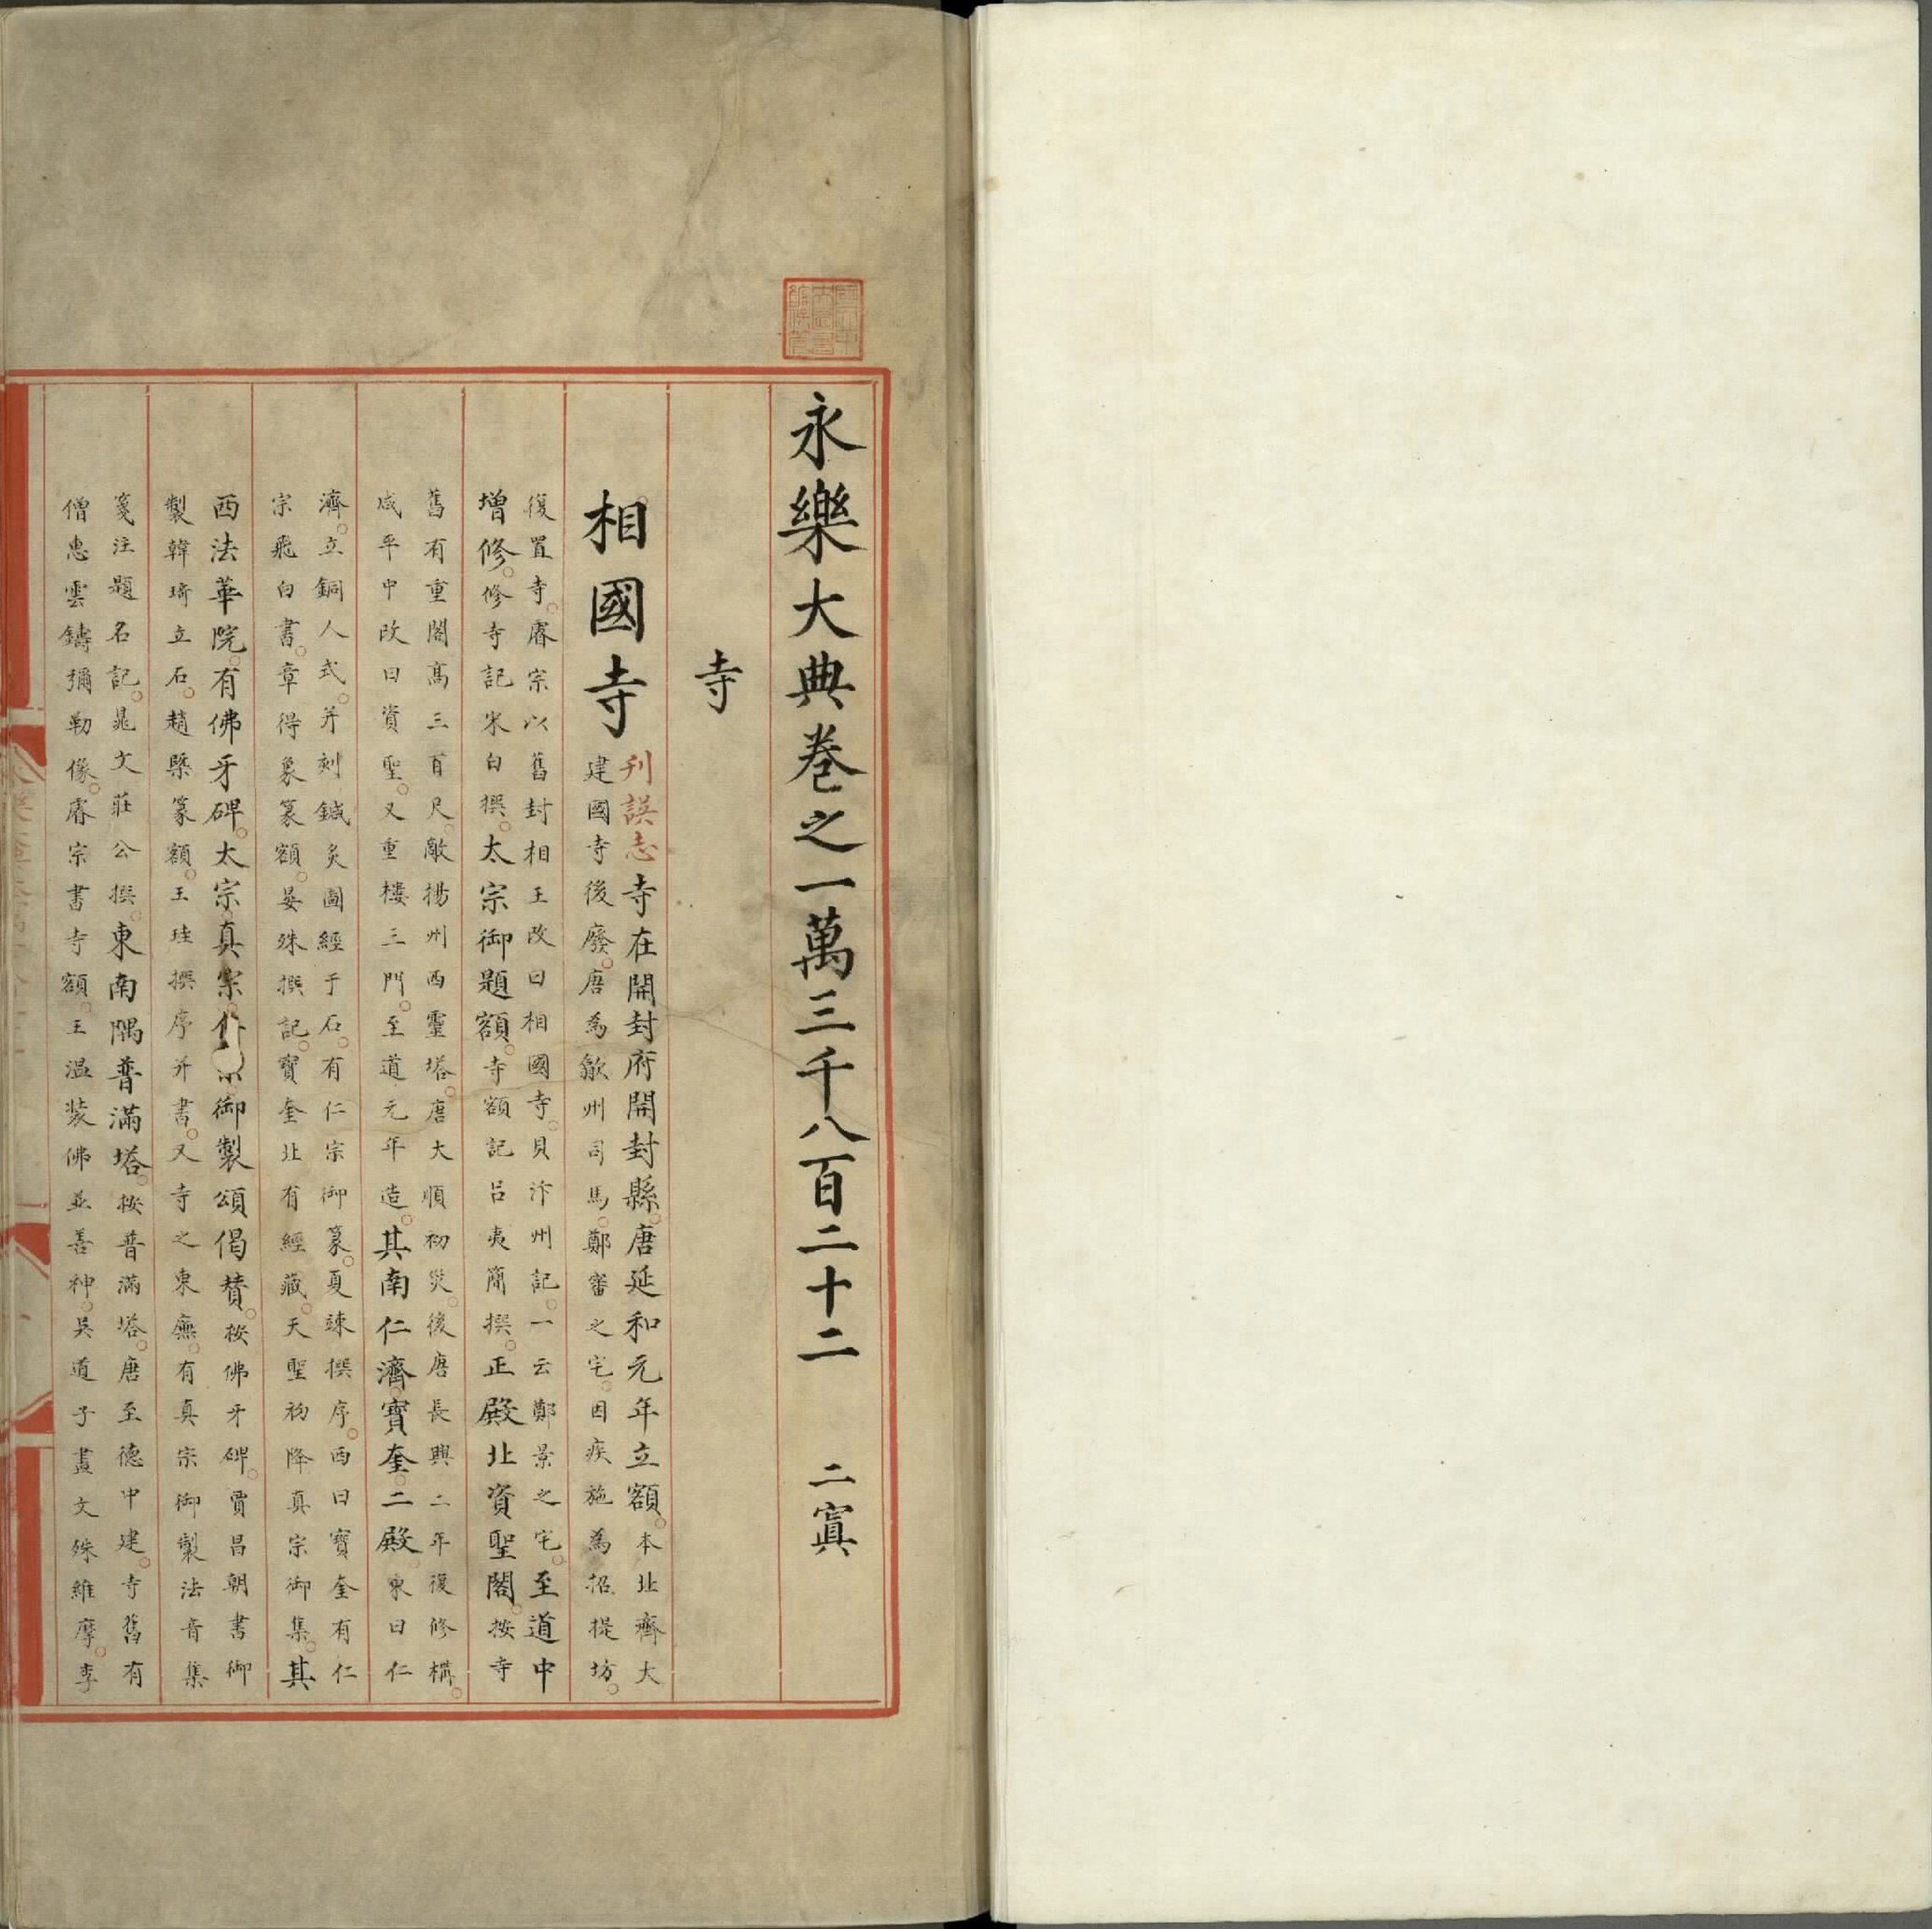 永樂大典卷之一萬三千八百二十二 二寘
寺
相國寺
刊誤志寺在開封府開封縣唐延和元年立額本北齊大
建國寺後廢唐為歙州司馬鄭審之宅因疾施為招提坊
復置寺睿宗以舊封相王改曰相國寺貝汴州記一云鄭景之宅至道中
增修修寺記宋白撰太宗御題額寺額記呂夷簡撰正殿北資聖閣按寺
舊有重閣高三百尺敵揚州西靈塔唐大順初災後唐長興二年復修構
咸平中改曰資聖又重樓三門至道元年造其南仁濟寶奎二殿東曰仁
濟立銅人式并刻鍼灸圖經于石有仁宗御篆夏竦撰序西曰寶奎有仁
宗飛白書章得象篆額晏殊撰記寶奎北有經藏天聖初降真宗御集其
西法華院有佛牙碑太宗真宗仁宗御製頌偈贊按佛牙碑賈昌朝書御
製韓琦立石趙槩篆額王珪撰序并書又寺之東廡有真宗御製法音集
箋注題名記晁文莊公撰東南隅普滿塔按普滿塔唐至德中建寺舊有
僧惠雲鑄彌勒像睿宗書寺額王温裝佛並善神吳道子畫文殊維摩李